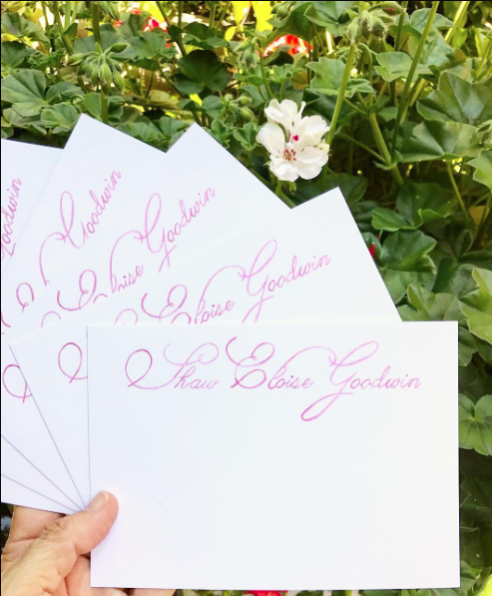 Goodwin
Goodwin
Eloise Goodwin
Eloise Goodwin
Shaw Eloise Goodwin